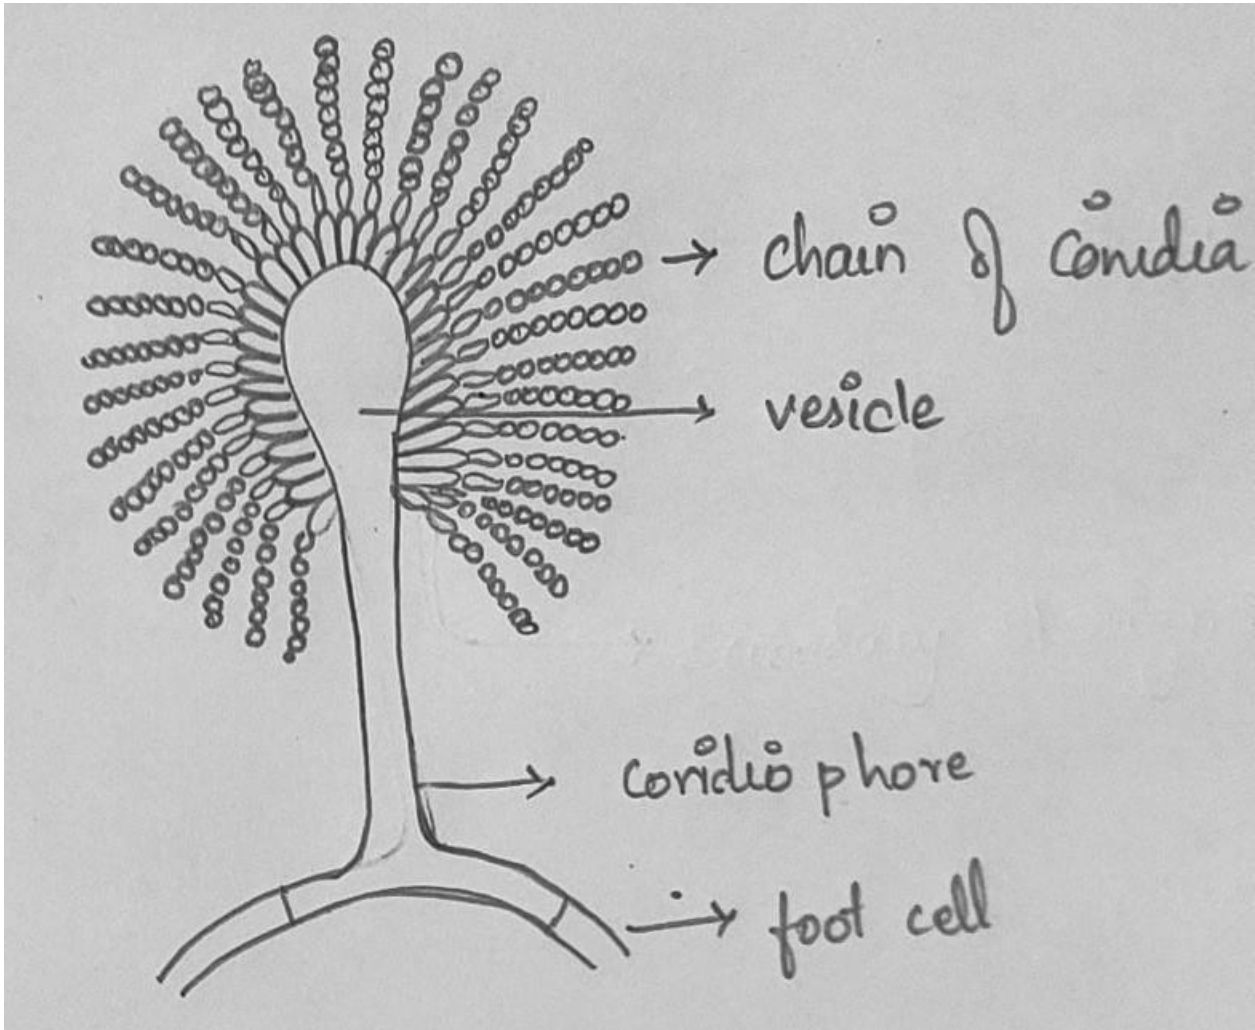 chain of conidia
vesicle
conidio phore
foot cell